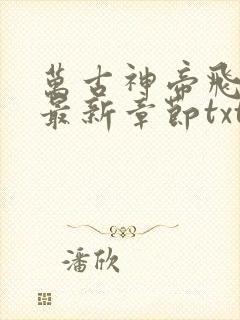 萬古神帝飛
最新章節txt
潘欣